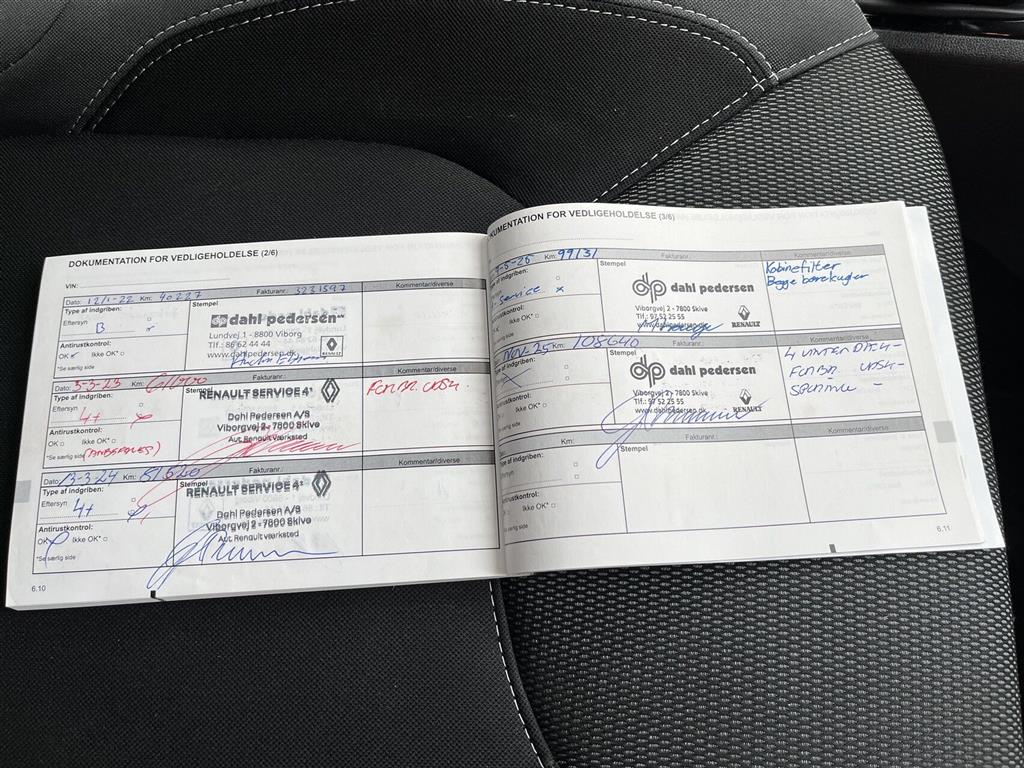 DOKUMENTATION FOR VEDLIGEHOLDELSE (2/6)
VIN:
Dato: 12/1-22 Km: 40227 Fakturanr.: 3231597 Kommentar/diverse
Type af indgriben: Stempel
Eftersyn B
dahl pedersen
Lundvej 1 - 8800 Viborg
Antirustkontrol: Tlf.: 86 62 44 44
OK Ikke OK*
www.dahlpedersen.dk
*Se særlig side
RENAULT
Dato: 3-3-23 Km: Fakturanr.: Kommentar/diverse
Type af indgriben: Stempel
RENAULT SERVICE
Eftersyn 4+
Dahl Pedersen A/S
Antirustkontrol: Viborgvej 2 - 7800 Skive
OK Ikke OK* Aut. Renault værksted
*Se særlig side
Dato: 13-3-24 Km: Fakturanr.: Kommentar/diverse
Type af indgriben: Stempel
RENAULT SERVICE
Eftersyn 4+
Dahl Pedersen A/S
Antirustkontrol: Viborgvej 2 - 7800 Skive
OK Ikke OK* Aut. Renault værksted
*Se særlig side
6.10
KUMENTATION FOR VEDLIGEHOLDELSE (3/6)
Km: 99131 Fakturanr.: Kommentar/diverse
Type af indgriben: Stempel Kabinefilter
Service x Begge bærekugler
dahl pedersen
Viborgvej 2 - 7800 Skive
Ikke OK* Tlf.: 97 52 25 55
www.dahlpedersen.dk
RENAULT
NOV-25 Km: 108640 Fakturanr.: Kommentar/diverse
Stempel 4 VINTER DÆK-
dahl pedersen
Viborgvej 2 - 7800 Skive
Ikke OK* Tlf.: 97 52 25 55
www.dahlpedersen.dk
RENAULT
Km: Fakturanr.: Kommentar/diverse
Type af indgriben: Stempel
Antirustkontrol:
OK Ikke OK*
*Se særlig side
6.11